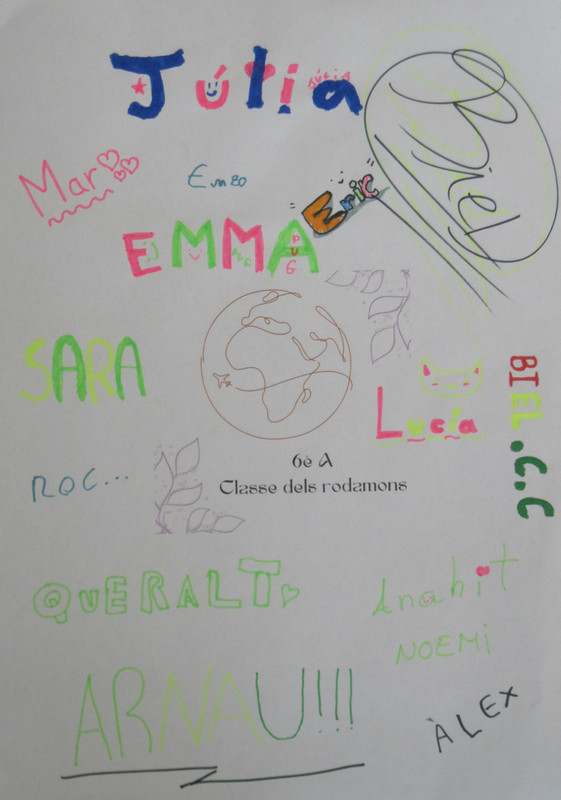 Júlia
Biel
Mar
Enzo
Eric
EMMA
PUG
SARA
Lucia
BIEL.C.C
6è A
Classe dels rodamons
ROC...
QUERALT
Anahit
NOEMI
ARNAU!!!
ÀLEX